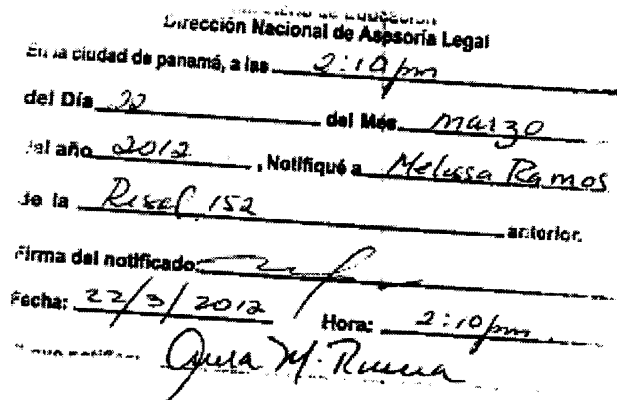 Dirección Nacional de Asesoría Legal
En la ciudad de panamá, a las 2:10 pm
del Día 22 del Més marzo
del año 2012, Notifiqué a Melissa Ramos
de la 152 anterior.
Firma del notificado:
Fecha: 22/3/2012 Hora: 2:10 pm
M.